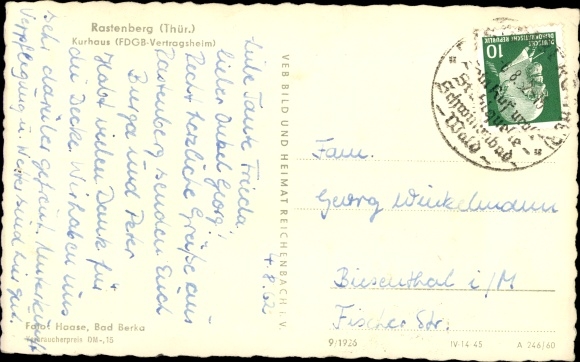 Rastenberg (Thür.)
Kurhaus (FDGB-Vertragsheim)
4.8.62
Liebe Tante Frieda,
lieber Onkel Georg!
Recht herzliche Grüße aus
Rastenberg senden Euch
Burga und Peter
Habt vielen Dank für
die Decke. Wir haben uns
sehr darüber gefreut. Unterkunft
Verpflegung u. Wetter sind gut.
Foto: Haase, Bad Berka
Verbraucherpreis DM -,15
VEB BILD UND HEIMAT REICHENBACH i. V.
DEUTSCHE
DEMOKRATISCHE REPUBLIK
10
Schwimmbad
Wald
Fam.
Georg Winkelmann
Biesenthal i/M
Fischer Str.
9/1926
IV-14-45
A 246/60